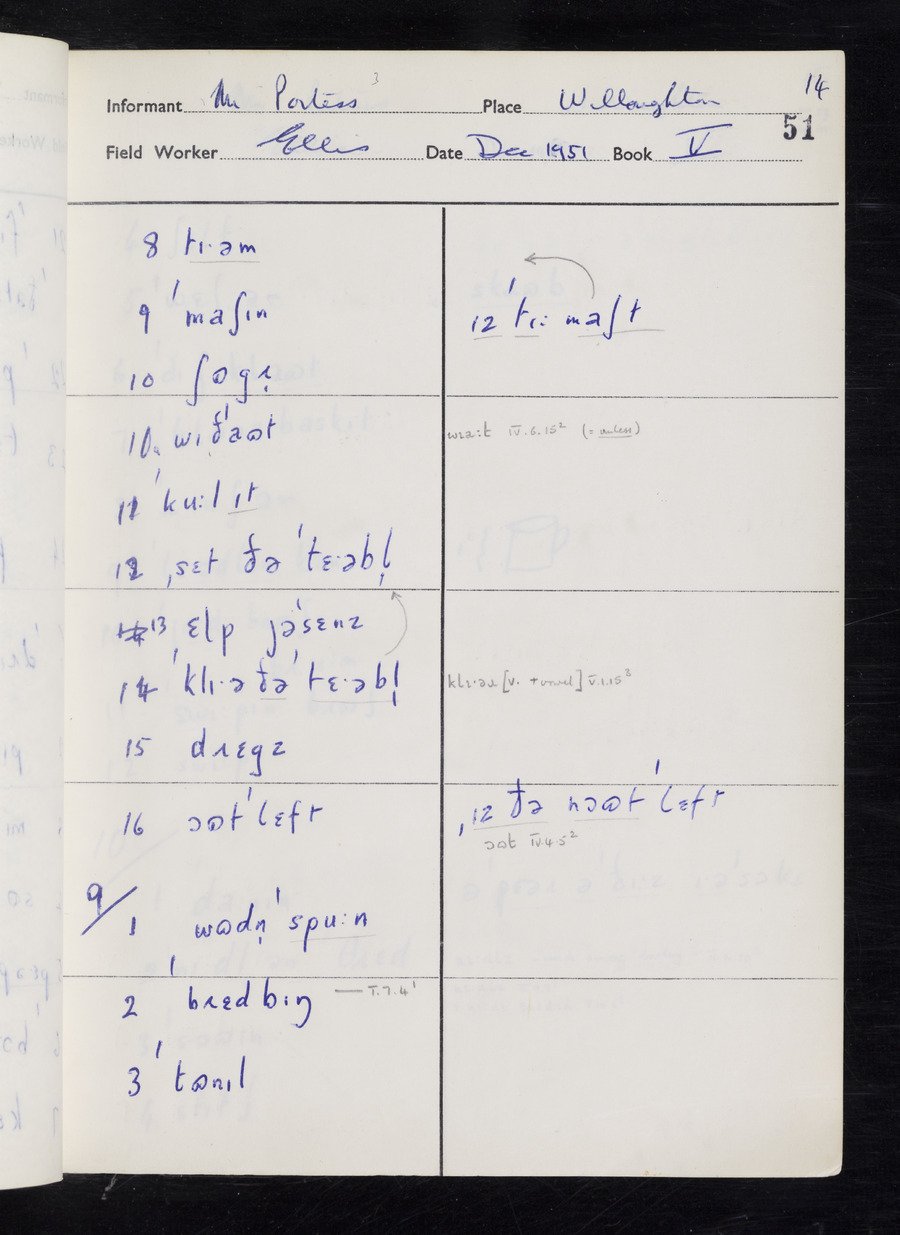 14
Informant Mr Portess 3 Place Willoughton
51
Field Worker Ellis Date Dec 1951 Book V
8 tɪ·əm
9 ˈmaʃɪn
10 ʃʊgɹ̩
10a wɪˈðaʊt
11 ˈkuːl ɪt
12 ˌsɛt ðə ˈtɛ·əbl̩
13 ˌɛlp jəˈsɛnz
14 ˈklɪ·ə ðəˈtɛ·əbl̩
15 dɹɛgz
16 ɔʊtˈlɛft
9/
1 wʊdn̩ˈspuːn
2 bɹɛdbɪŋ — V.7.4¹
3 ˈtʊnɪl
12 ˈtɪː maʃt
wɪaːt IV.6.15² (= unless)
klɪ·əɹ [v. + vowel] V.1.15³
ˌɪz ðə nɔʊt ˈlɛft
ɔʊt IV.4.5²